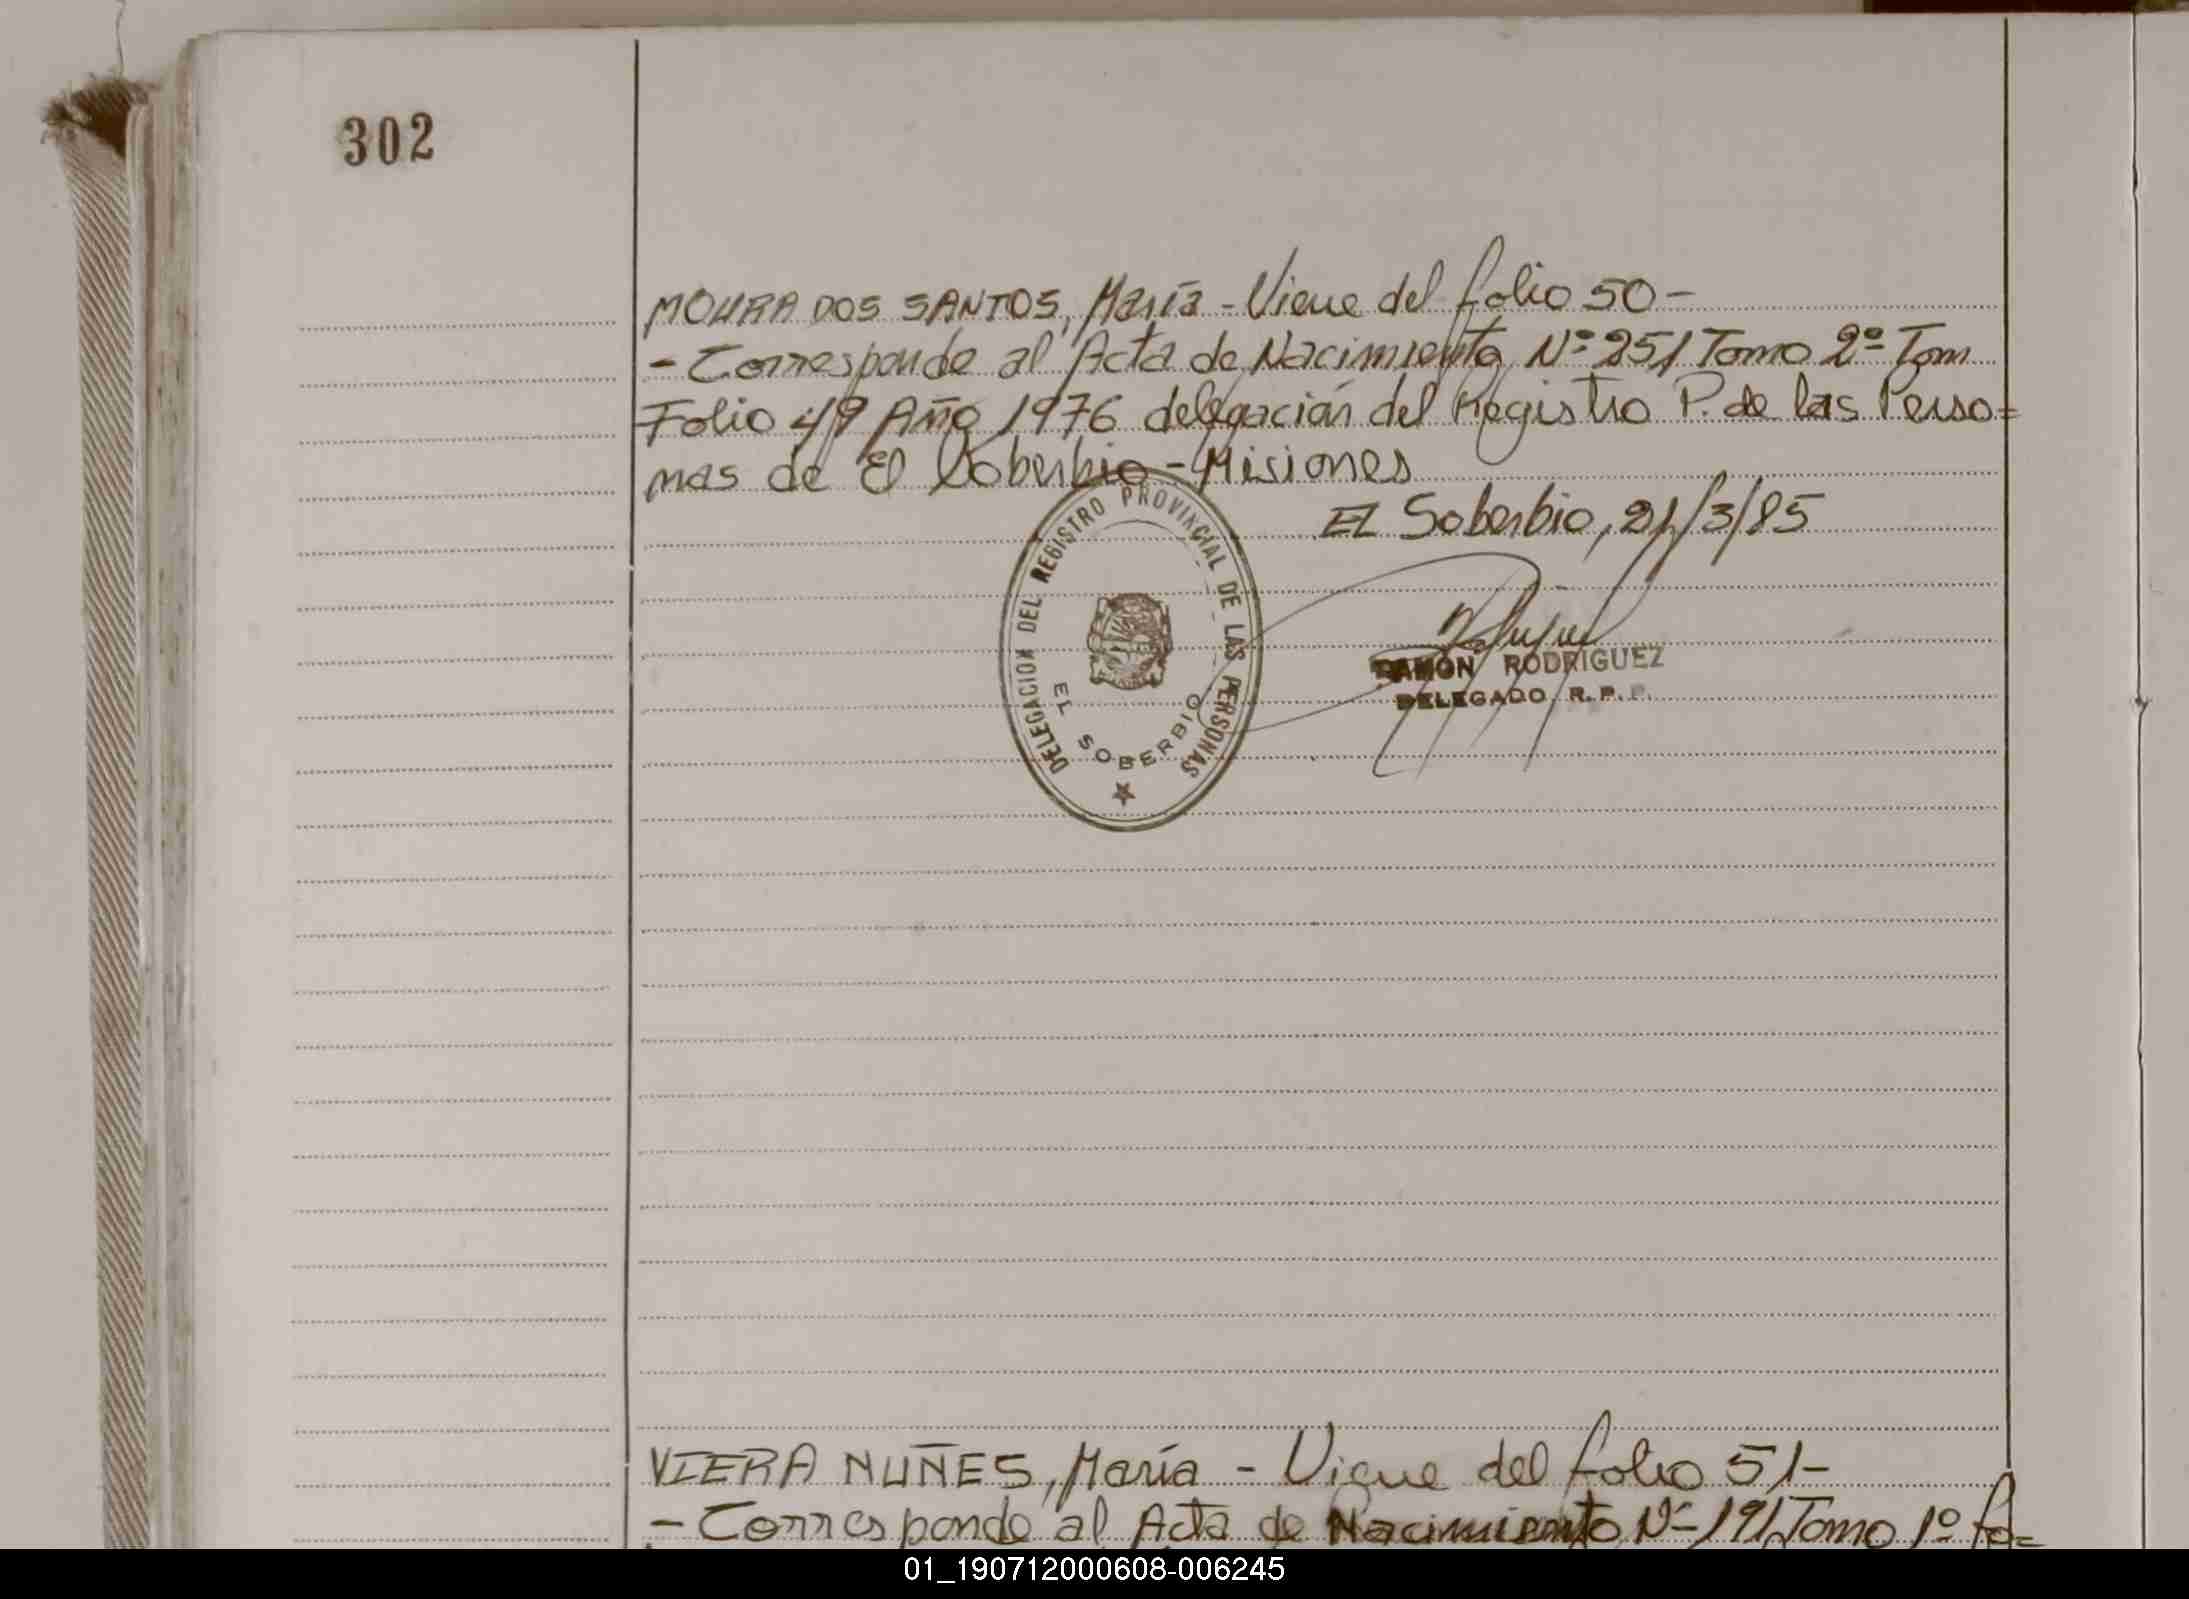 302
MOURA DOS SANTOS, María - Viene del folio 50 -
- Corresponde al Acta de Nacimiento Nº 251 Tomo 2º Tom
Folio 49 Año 1976 delegación del Registro P. de las Perso=
nas de El Soberbio - Misiones
El Soberbio, 21/3/85
DELEGACION DEL REGISTRO PROVINCIAL DE LAS PERSONAS
EL SOBERBIO
RAMÓN RODRIGUEZ
DELEGADO R.P.P.
VIERA NUÑES, María - Viene del folio 51-
- Corresponde al Acta de Nacimiento Nº 191 Tomo 1º fo=
01_190712000608-006245